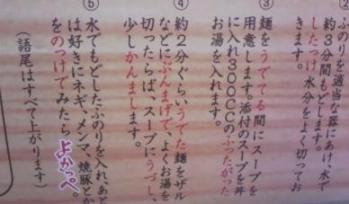 ②ふのりを適当な器にあけ、水で
約3分間もどします。
したっけ水分をよく切ってお
きます。
③麺をうでてる間にスープを
用意します。添付のスープを丼
に入れ300CCのふったがった
お湯を入れます。
④約2分ぐらいうでた麺をザル
などにぶんまげて、よくお湯を
切ったらば、スープにうづし、
少しかんまします。
⑤水でもどしたふのりを入れ、あと
は好きにネギ、メンマ、焼豚とか
をのっけてみたらよかっぺ。
(語尾はすべて上がります)